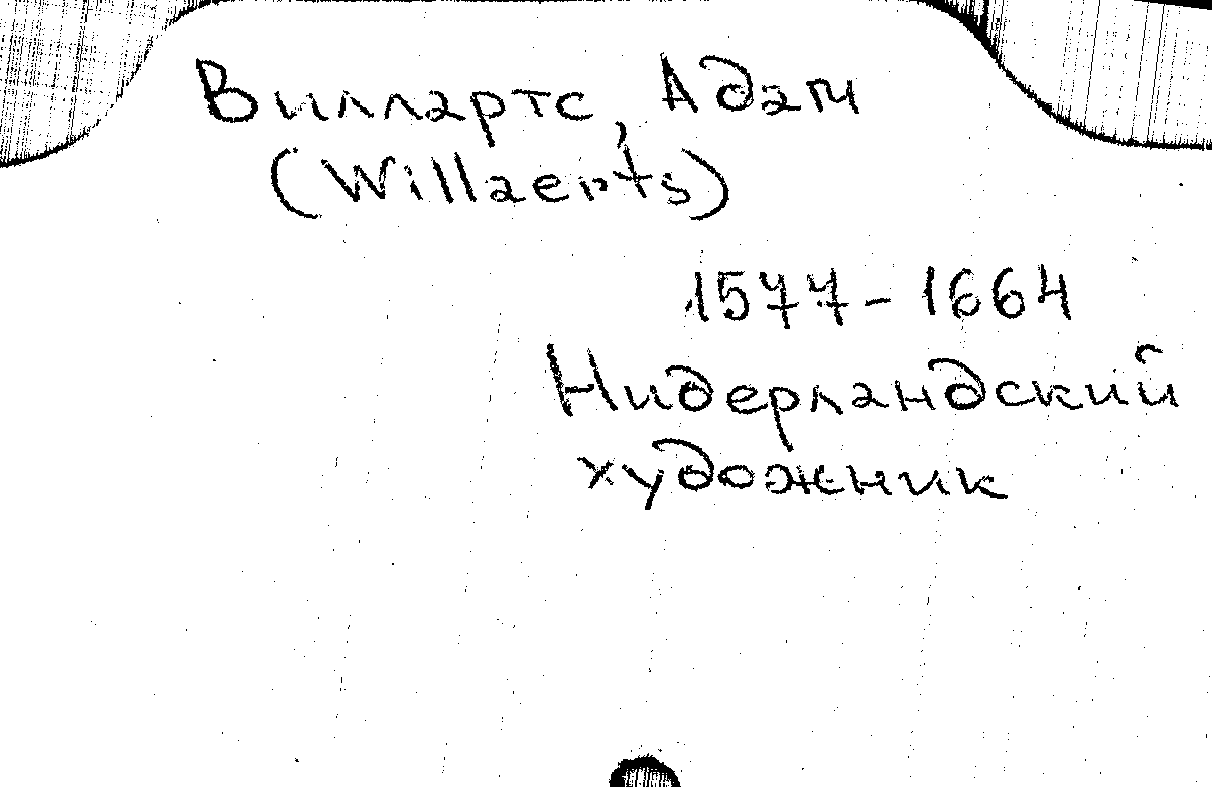 Виллартс, Адам
(Willaerts)
1577-1664
Нидерландский
художник